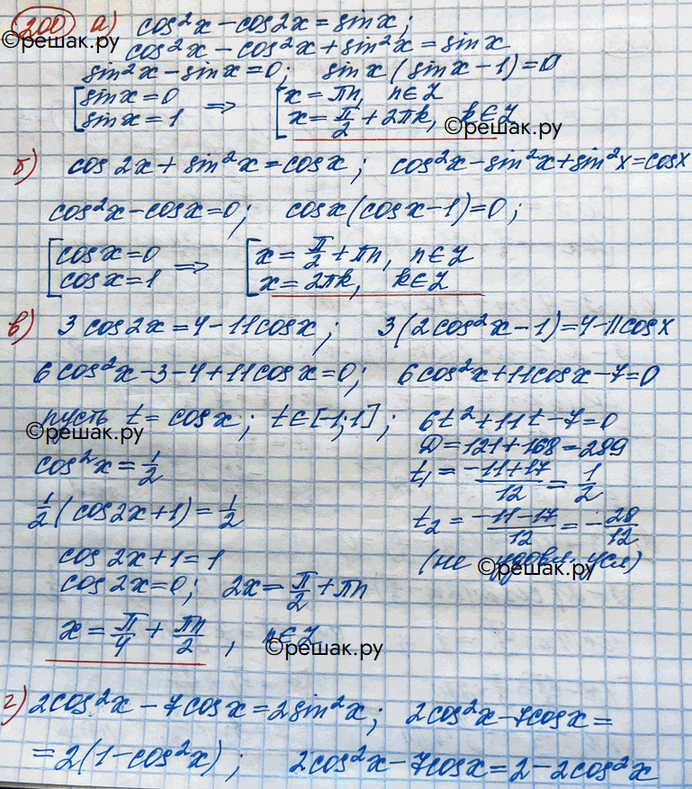 200 а) cos²x - cos2x = sinx;
©решак.ру
cos²x - cos²x + sin²x = sinx
sin²x - sinx = 0; sinx (sinx - 1) = 0
[sinx = 0 ⇒ [x = πn, n∈Z
[sinx = 1 [x = π/2 + 2πk, k∈Z
©решак.ру
б) cos 2x + sin²x = cosx; cos²x - sin²x + sin²x = cosx
cos²x - cosx = 0; cosx (cosx - 1) = 0;
[cosx = 0 ⇒ [x = π/2 + πn, n∈Z
[cosx = 1 [x = 2πk, k∈Z
в) 3 cos 2x = 4 - 11cosx; 3(2cos²x - 1) = 4 - 11cosx
6cos²x - 3 - 4 + 11cosx = 0; 6cos²x + 11cosx - 7 = 0
пусть t = cosx; t∈[-1;1]; 6t² + 11t - 7 = 0
©решак.ру
D = 121 + 168 = 289
cos²x = 1/2 t₁ = (-11+17)/12 = 1/2
1/2 (cos2x + 1) = 1/2 t₂ = (-11-17)/12 = -28/12
cos 2x + 1 = 1 (не удовл. усл)
©решак.ру
cos 2x = 0; 2x = π/2 + πn
x = π/4 + πn/2, n∈Z
©решак.ру
г) 2cos²x - 7cosx = 2sin²x; 2cos²x - 7cosx =
= 2(1 - cos²x); 2cos²x - 7cosx = 2 - 2cos²x